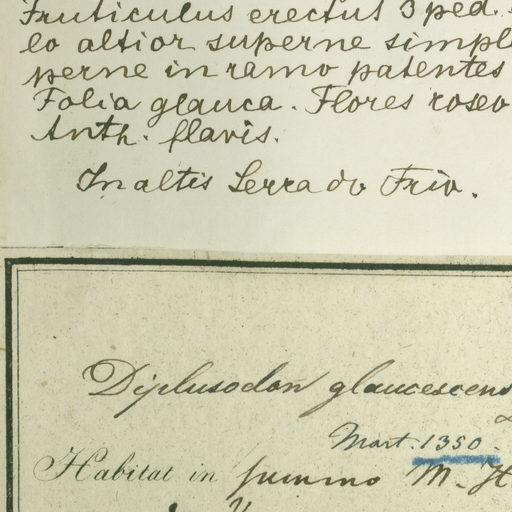 Fruticulus erectus 3 ped.
eo altior superne simpl
perne in ramo patentes
Folia glauca. Flores roseo
Anth. flavis.
In altis Serra do Frio.
Diplusodon glaucescens
Mart. 1350.
Habitat in summo M. H